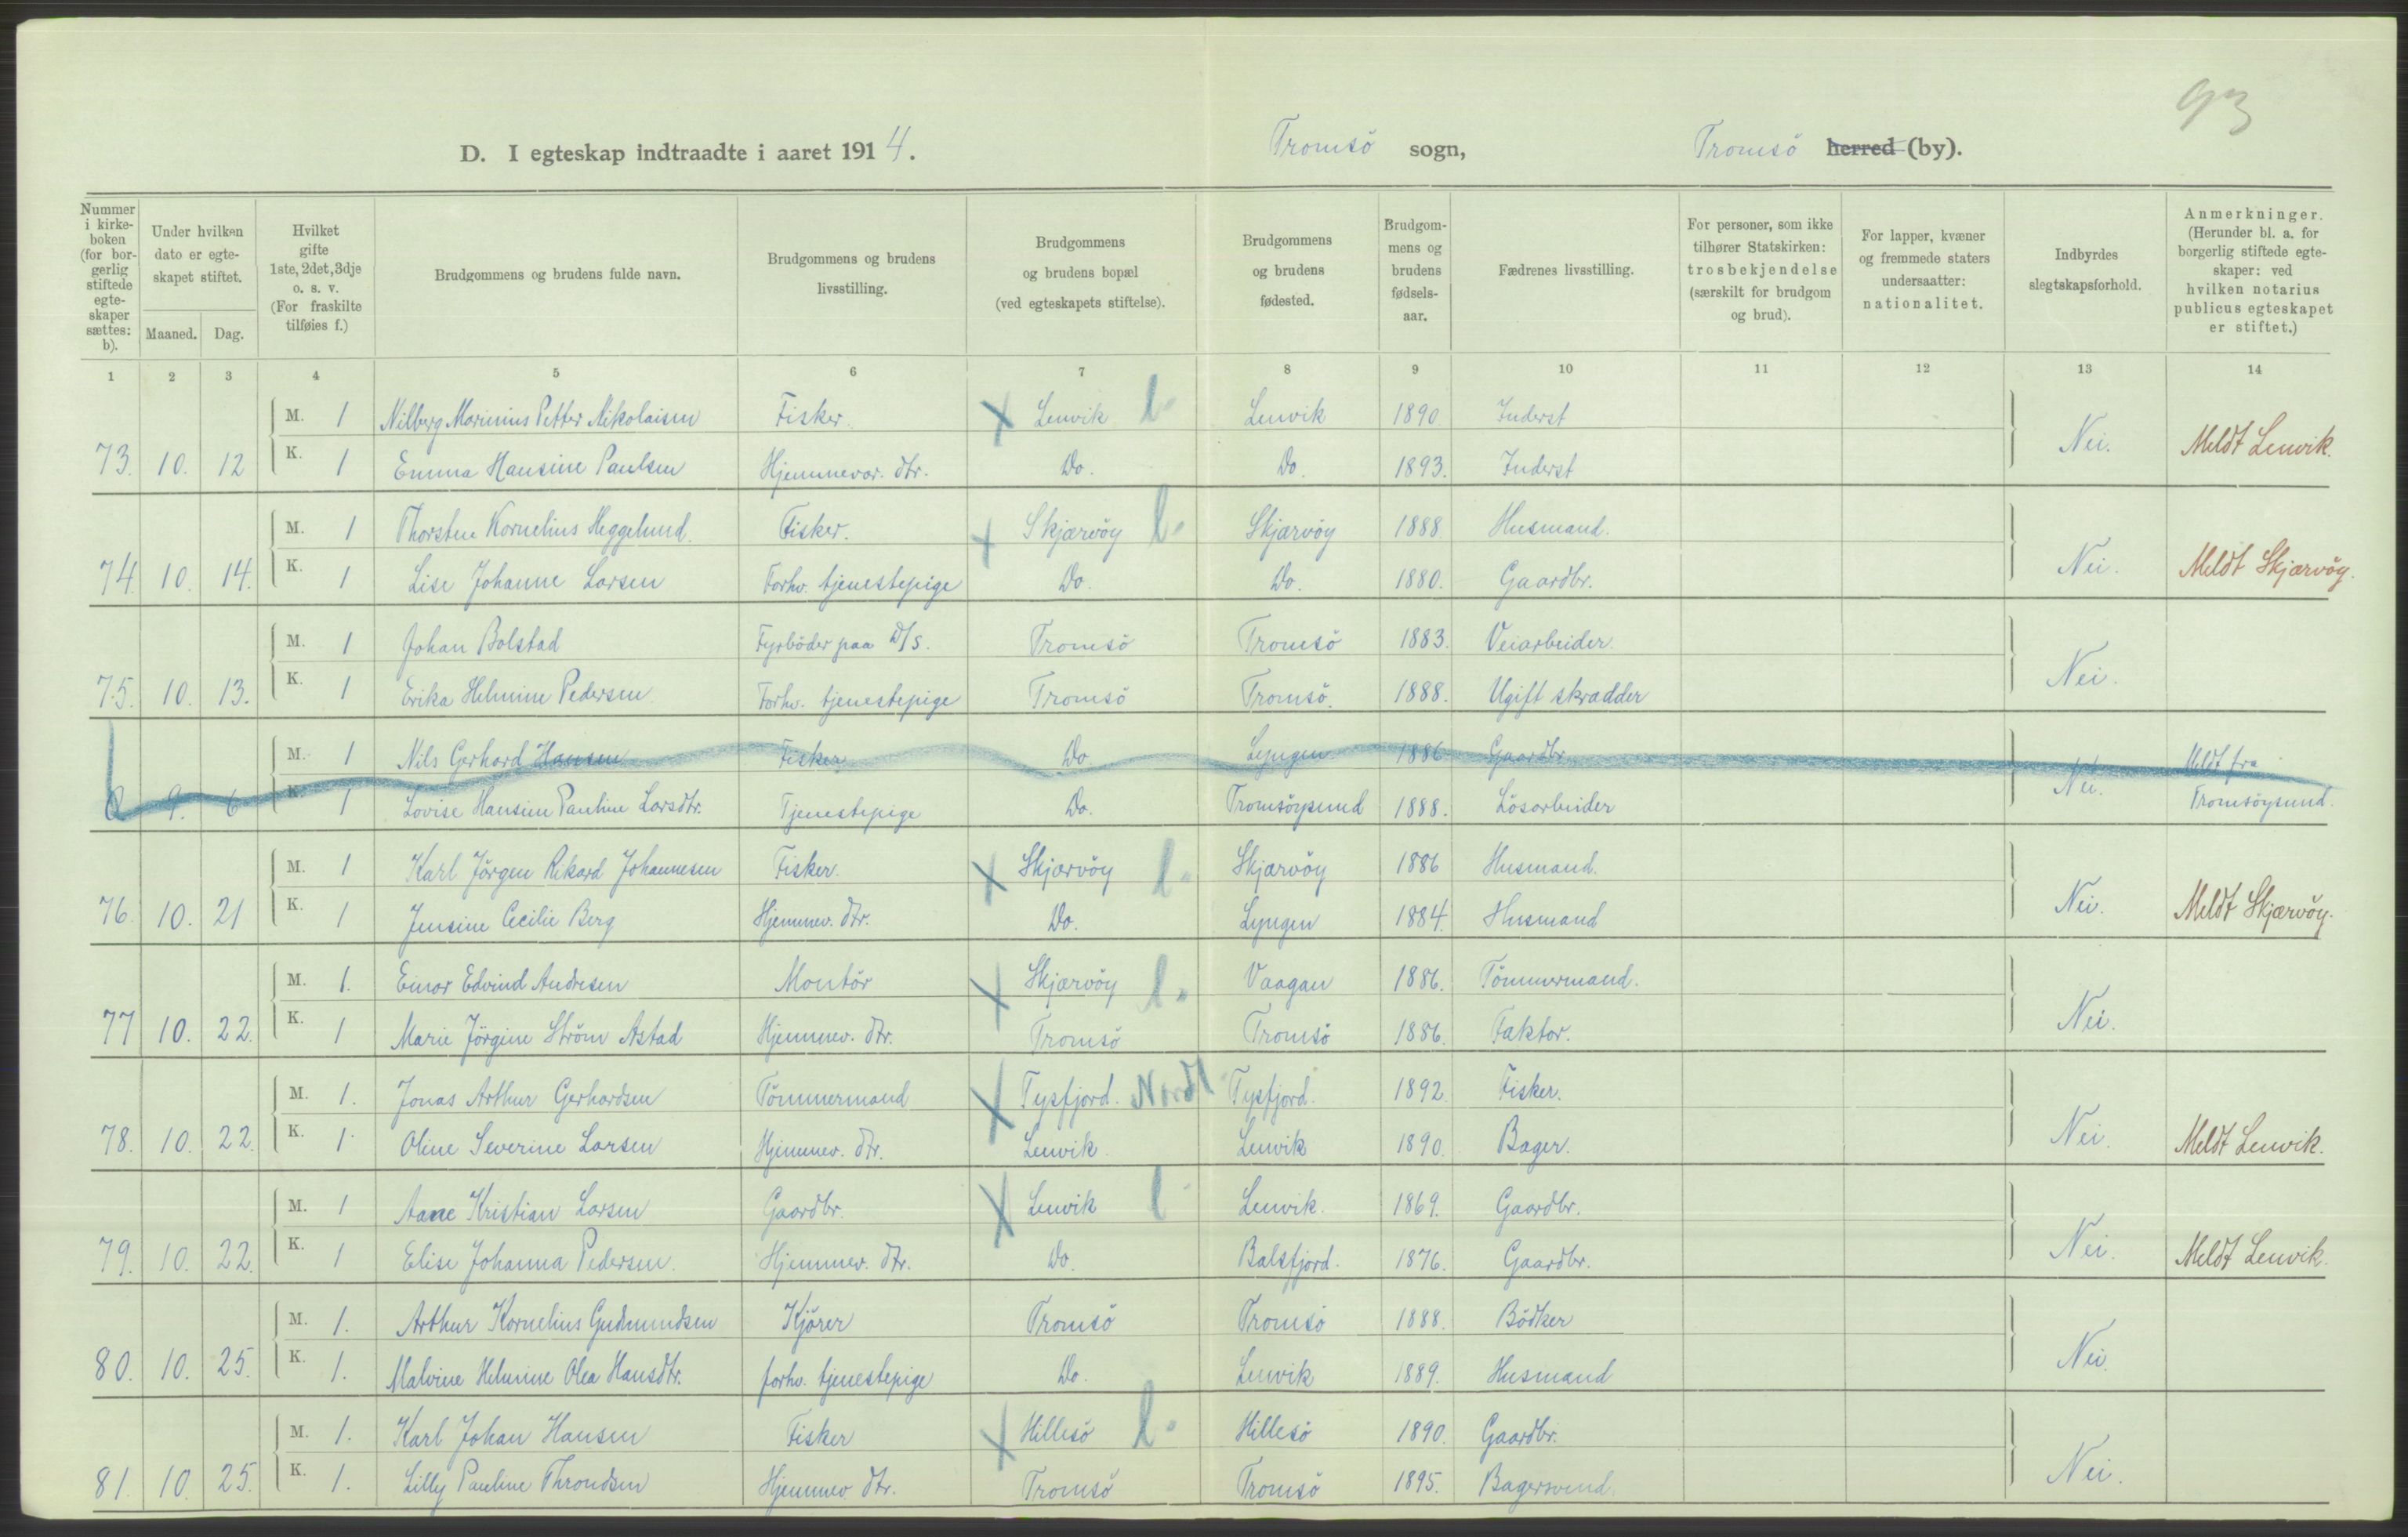 93
D. I egteskap indtraadte i aaret 1914. Tromsö sogn, Tromsö herred (by).
Nummer i kirkeboken (for borgerlig stiftede egteskaper sættes: b).
Under hvilken dato er egteskapet stiftet.
Maaned. Dag.
Hvilket gifte 1ste, 2det, 3dje o. s. v. (For fraskilte tilføies f.)
Brudgommens og brudens fulde navn.
Brudgommens og brudens livsstilling.
Brudgommens og brudens bopæl (ved egteskapets stiftelse).
Brudgommens og brudens fødested.
Brudgommens og brudens fødselsaar.
Fædrenes livsstilling.
For personer, som ikke tilhører Statskirken: trosbekjendelse (særskilt for brudgom og brud).
For lapper, kvæner og fremmede staters undersaatter: nationalitet.
Indbyrdes slegtskapsforhold.
Anmerkninger. (Herunder bl. a. for borgerlig stiftede egteskaper: ved hvilken notarius publicus egteskapet er stiftet.)
1 2 3 4 5 6 7 8 9 10 11 12 13 14
M. 1 Nilberg Marinius Petter Nikolaisen Fisker. X Lenvik l. Lenvik 1890 Inderst
73. 10. 12 K. 1 Emma Hansine Paulsen Hjemmevær. dtr. Do. Do. 1893. Inderst Nei. Meldt Lenvik.
M. 1 Thorsten Kornelius Heggelund. Fisker. X Skjærvöy l. Skjærvöy 1888. Husmand.
74. 10. 14. K. 1 Lise Johanne Larsen Forhv. tjenestepige Do. Do. 1880. Gaardbr. Nei. Meldt Skjærvöy.
M. 1 Johan Bolstad Fyrböder paa D/S. Tromsö Tromsö 1883. Veiarbeider.
75. 10. 13. K. 1 Erika Helmine Pedersen Forhv. tjenestepige Tromsö Tromsö. 1888. Ugift skrædder Nei.
M. 1 Nils Gerhard Hansen Fisker Do. Lyngen 1886 Gaardbr. Meldt fra
9. 6 K. 1 Lovise Hansine Pauline Larsdtr. Tjenestepige Do. Tromsöysund 1888. Lösarbeider Nei. Tromsöysund.
M. 1 Karl Jörgen Rikard Johannesen Fisker. X Skjærvöy l. Skjærvöy 1886 Husmand.
76. 10. 21 K. 1 Jensine Cecilie Berg Hjemmev. dtr. Do. Lyngen 1884. Husmand Nei. Meldt Skjærvöy.
M. 1. Einar Edvind Andresen Montör X Skjærvöy l. Vaagan 1886. Tömmermand.
77 10. 22. K. 1 Marie Jörgine Ström Astad Hjemmev. dtr. Tromsö Tromsö 1886. Faktor. Nei.
M. 1. Jonas Arthur Gerhardsen Tömmermand X Tysfjord. Nordl Tysfjord. 1892. Fisker.
78. 10. 22. K. 1. Oline Severine Larsen Hjemmev. dtr. Lenvik. Lenvik 1890. Bager. Nei. Meldt Lenvik.
M. 1 Aane Kristian Larsen Gaardbr. X Lenvik l Lenvik. 1869. Gaardbr.
79. 10. 22. K. 1 Elise Johanna Pedersen. Hjemmev. dtr. Do. Balsfjord. 1876. Gaardbr. Nei. Meldt Lenvik.
M. 1. Arthur Kornelius Gudmundsen Kjörer Tromsö Tromsö 1888. Bödker
80. 10. 25. K. 1. Malvine Helmine Olea Hansdtr. forhv. tjenestepige Do. Lenvik 1889. Husmand Nei.
M. 1. Karl Johan Hansen Fisker X Hillesö l. Hillesö 1890. Gaardbr.
81. 10. 25. K. 1. Lilly Pauline Throndsen Hjemmev. dtr. Tromsö Tromsö 1895. Bagersvend. Nei.